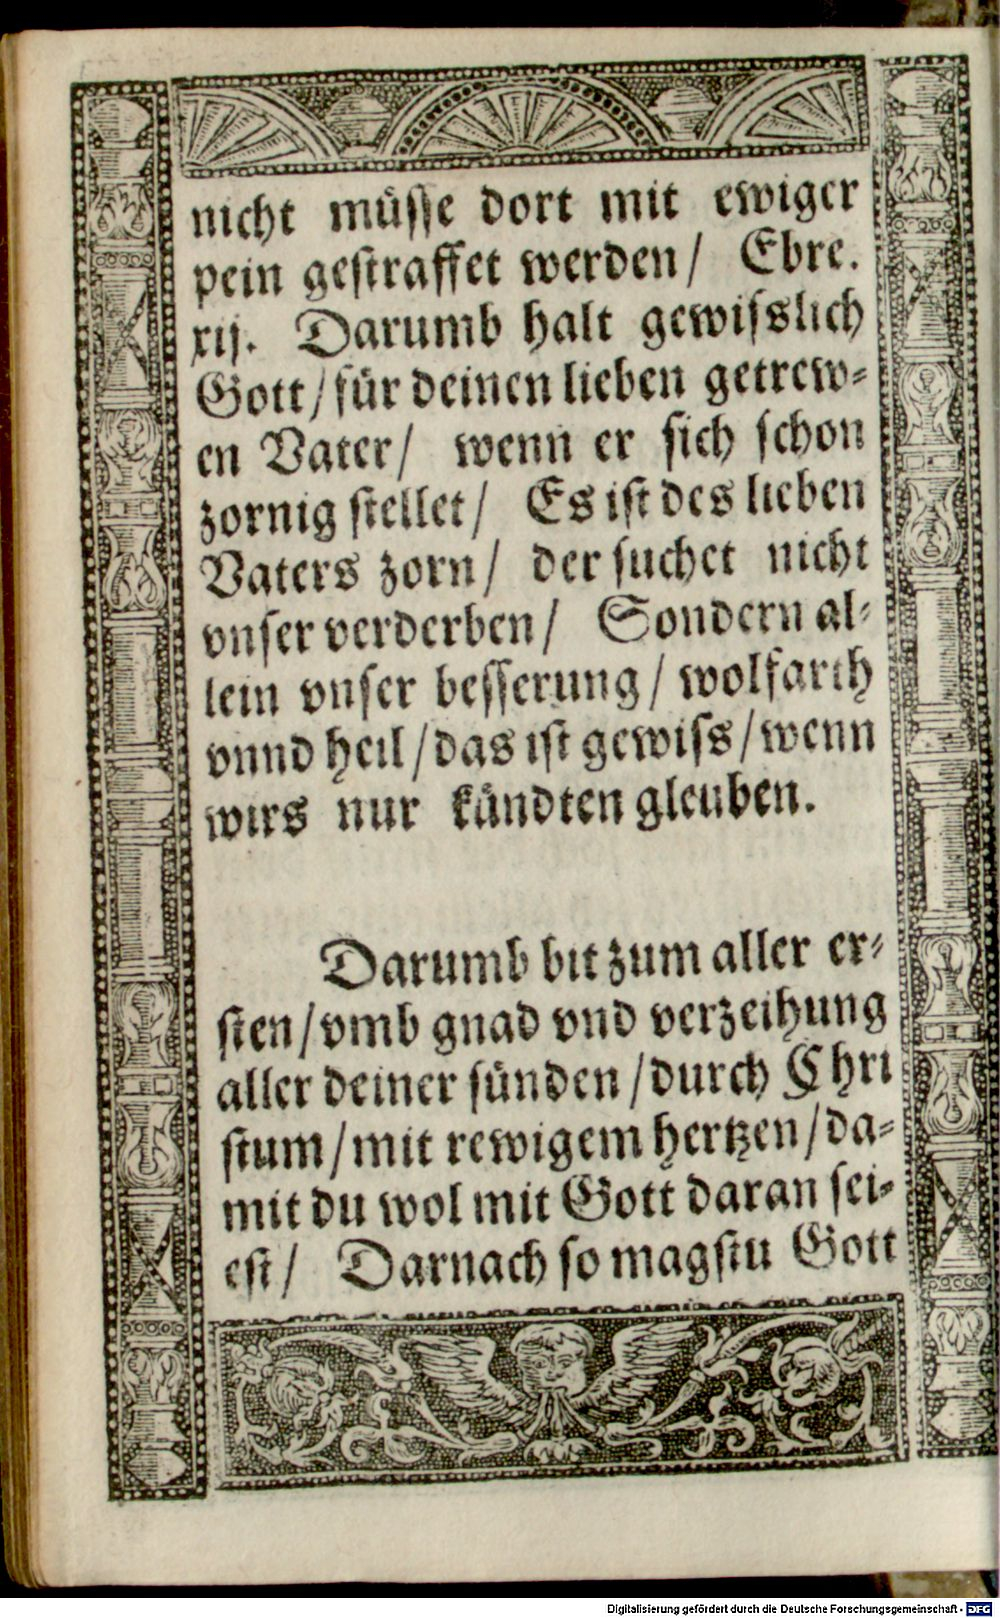 nicht müſſe dort mit ewiger
pein geſtraffet werden/ Ebre.
xij. Darumb halt gewiſslich
Gott/für deinen lieben getrew⸗
en Vater/ wenn er ſich ſchon
zornig ſtellet/ Es iſt des lieben
Vaters zorn/ der ſuchet nicht
vnſer verderben/ Sondern al⸗
lein vnſer beſſerung/wolfarth
vnnd heil/das iſt gewiſs/wenn
wirs nur kändten gleuben.
Darumb bit zum aller er⸗
ſten/vmb gnad vnd verzeihung
aller deiner ſünden/durch Chri
ſtum/mit rewigem hertzen/da⸗
mit du wol mit Gott daran ſei⸗
eſt/ Darnach ſo magſtu Gott
Digitalisierung gefördert durch die Deutsche Forschungsgemeinschaft - DFG